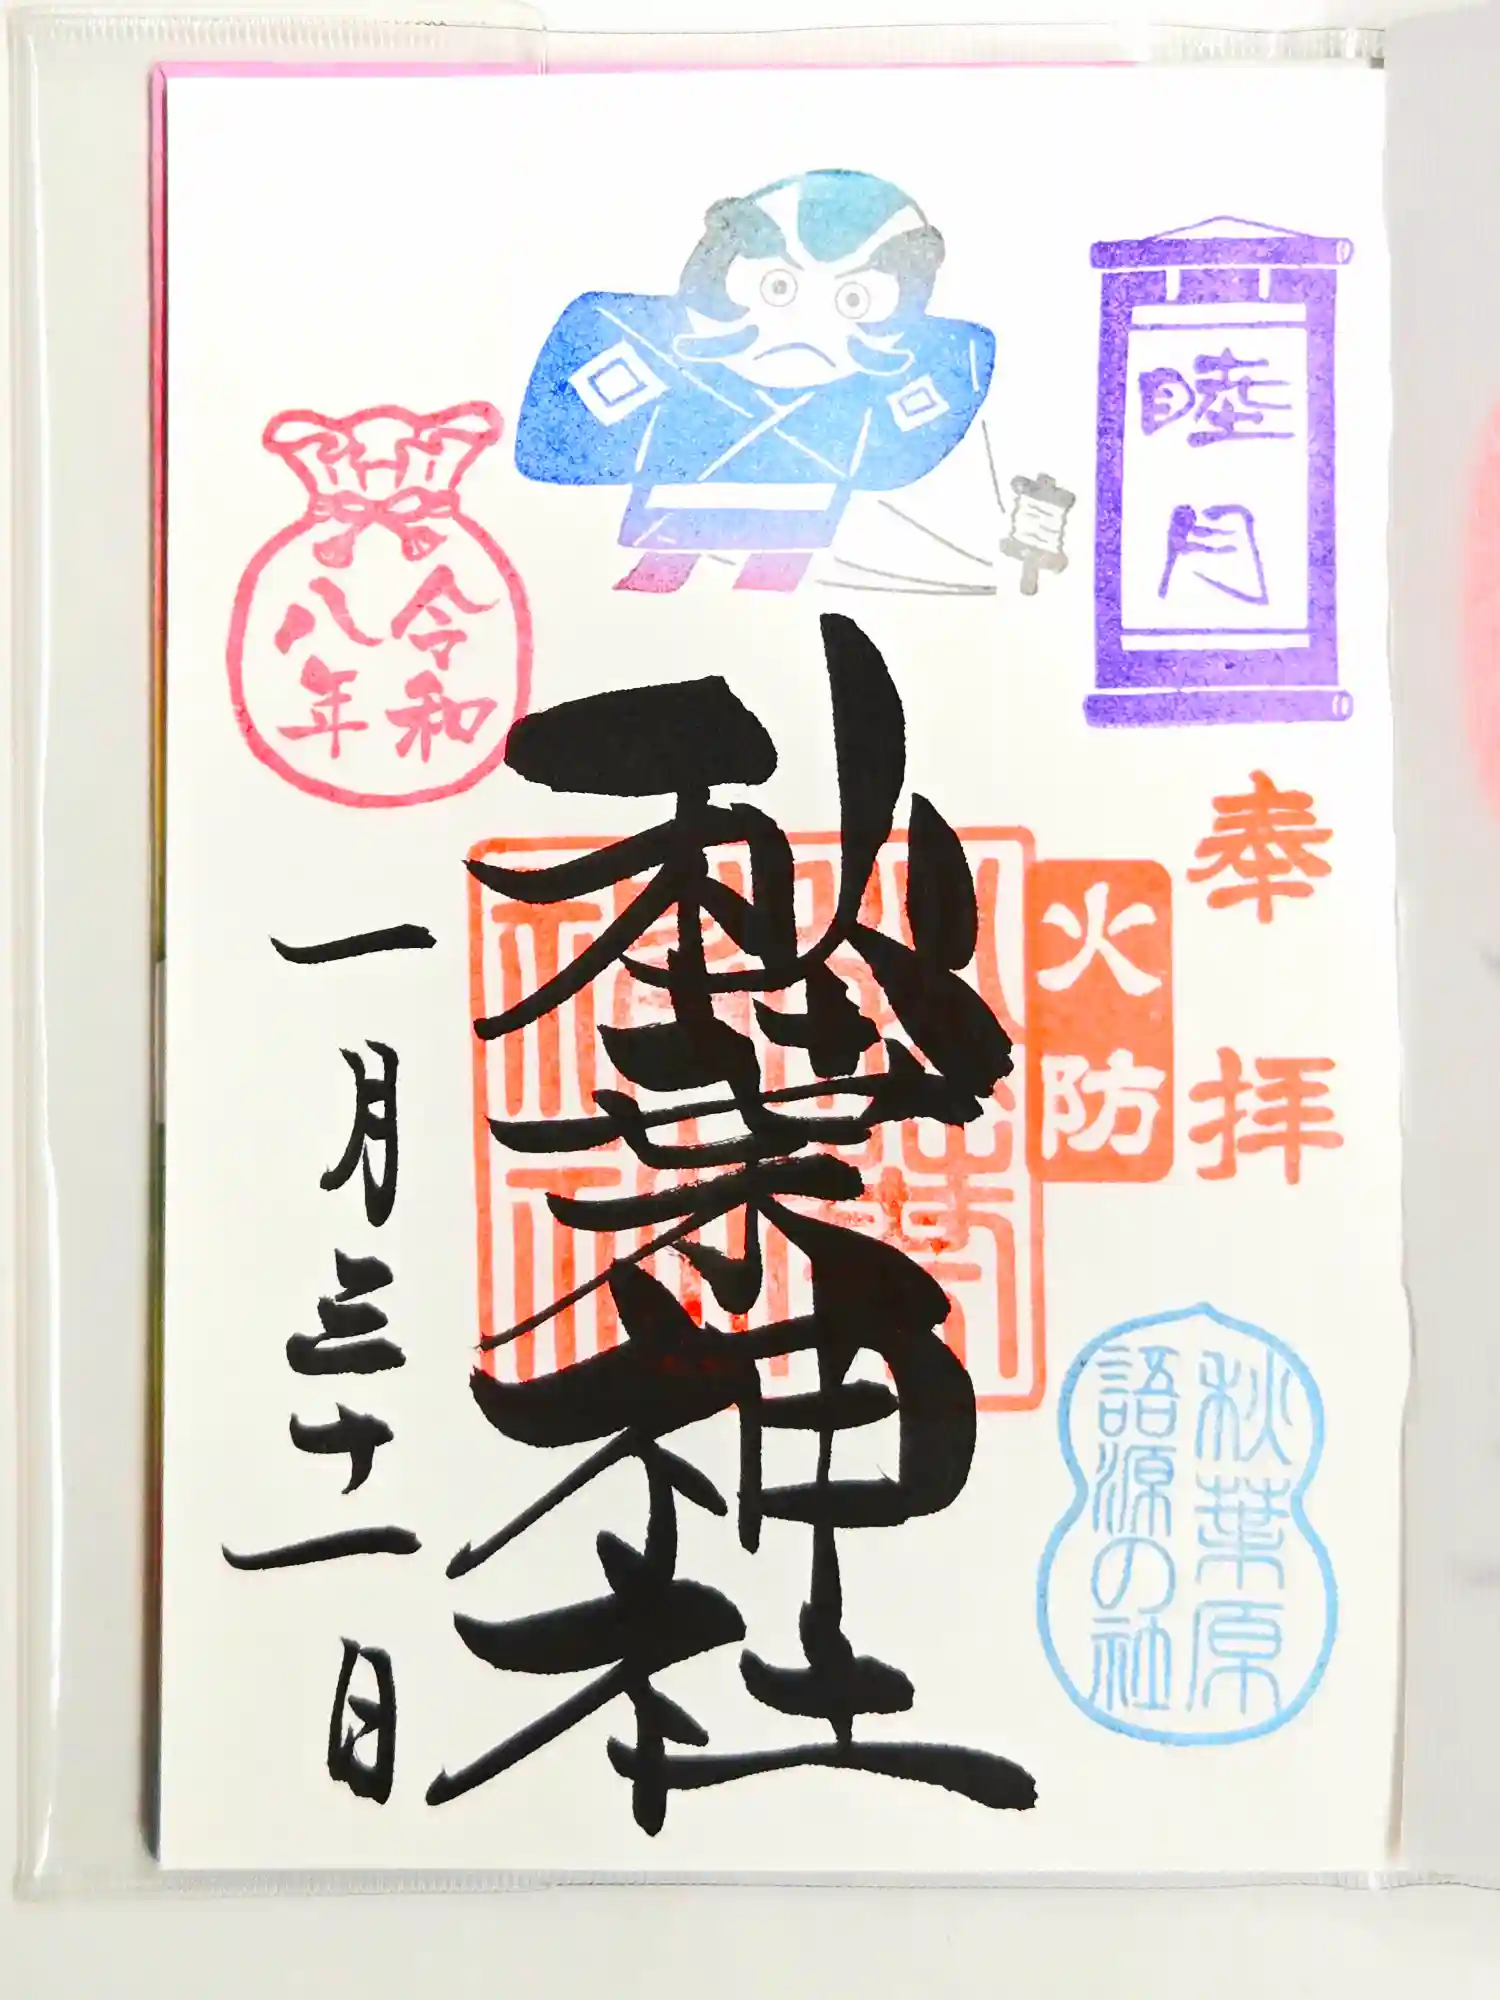 睦月
奉拝
火防
秋葉原
語源の社
秋葉神社
令和
八年
一月三十一日